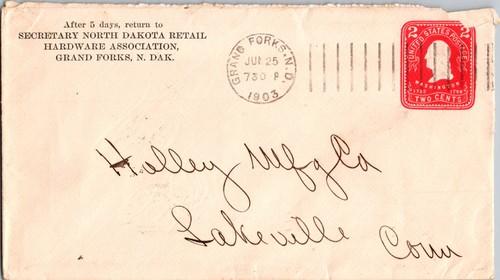 After 5 days, return to
SECRETARY NORTH DAKOTA RETAIL
HARDWARE ASSOCIATION,
GRAND FORKS, N. DAK.
GRAND FORKS. N.D.
JUN 25
730 P
1903
2 2
UNITED STATES POSTAGE
WASHINGTON
TWO CENTS
Holley Mfg Co
Lakeville
Conn